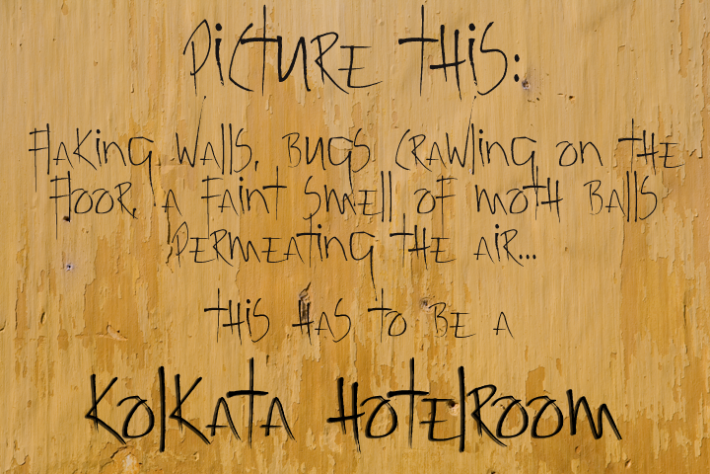 Picture this:
Flaking walls, bugs crawling on the
floor, a faint smell of moth balls
permeating the air...
this has to be a
Kolkata Hotelroom